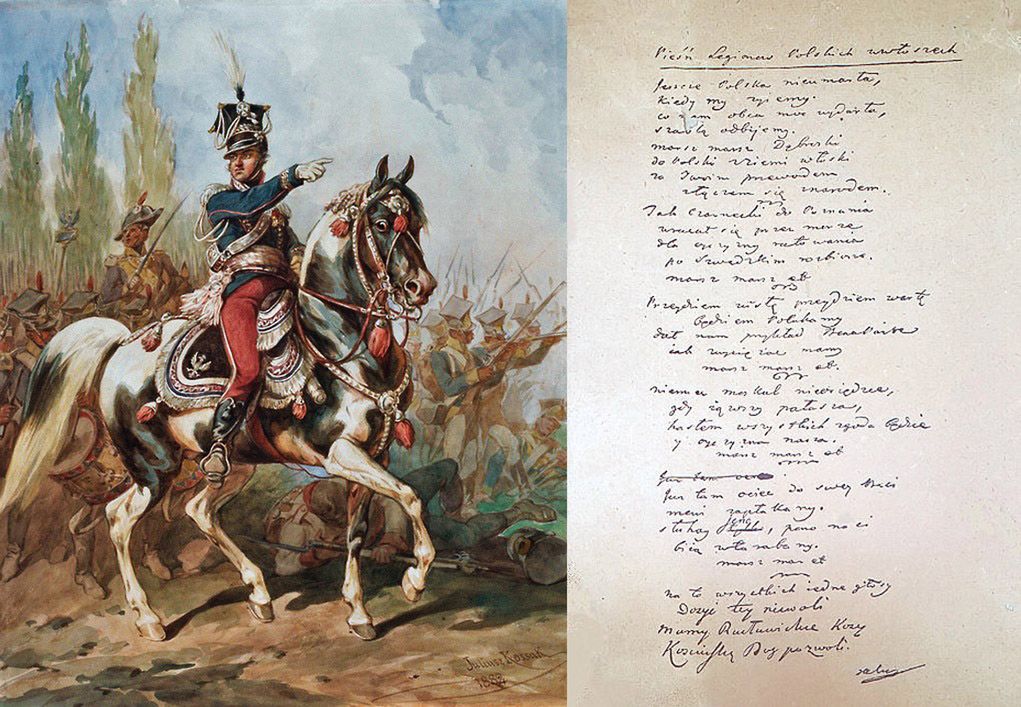 Juliusz Kossak
1882
Pieśń Legionow Polskich w włoszech
Jeszcze Polska nieumarła,
kiedy my żyiemy.
co nam obca moc wydarła,
szablą odbijemy.
marsz marsz Dąbrowski
do Polski z ziemi włoski
za Twoim przewodem
złączem się znarodem.
Jak Czarnecki do Poznania
wracał się przez morze
dla oyczyzny ratowania
po szwedzkim rozbiorze.
marsz marsz et
Przeydziem wisłę przeydziem wartę
będziem Polakamy
dał nam przykład Bonaparte
iak zwyciężać mamy
marsz marsz et.
niemiec moskal nieosiędzie,
gdy iąwszy pałasza,
hasłem wszystkich zgoda będzie
y oyczyzna nasza.
marsz marsz et
Już tam
Już tam ociec do swey Basi
mówi zapłakany.
słuchay ieno, pono nasi
biią wtarabany.
marsz marsz et
na to wszystkich iedne głosy
Dosyć tey niewoli
mamy Racławickie Kosy
Kosciuszkę Bog pozwoli.